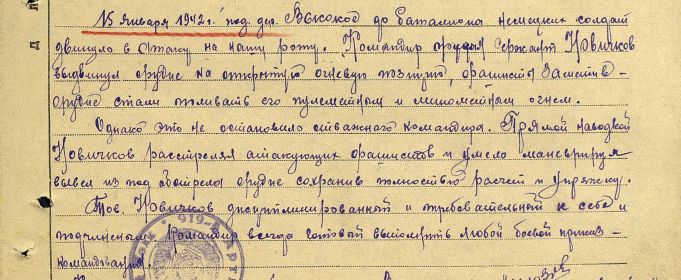 15 января 1942 г. под дер. Высокое до баталиона немецких солдат
двинуло в атаку на нашу роту. Командир орудия сержант Новичков
выдвинул орудие на открытую огневую позицию, фашисты заметив
орудие стали поливать его пулеметным и минометным огнем.
Однако это не остановило отважного командира. Прямой наводкой
Новичков расстрелял атакующих фашистов и умело маневрируя
вывел из под обстрела орудие сохранив полностью расчет и упряжку.
Тов. Новичков дисциплинированный и требовательный к себе и
подчиненным командир всегда готовый выполнить любой боевой приказ
командования.